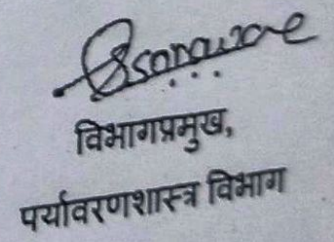 विभागप्रमुख,
पर्यावरणशास्त्र विभाग